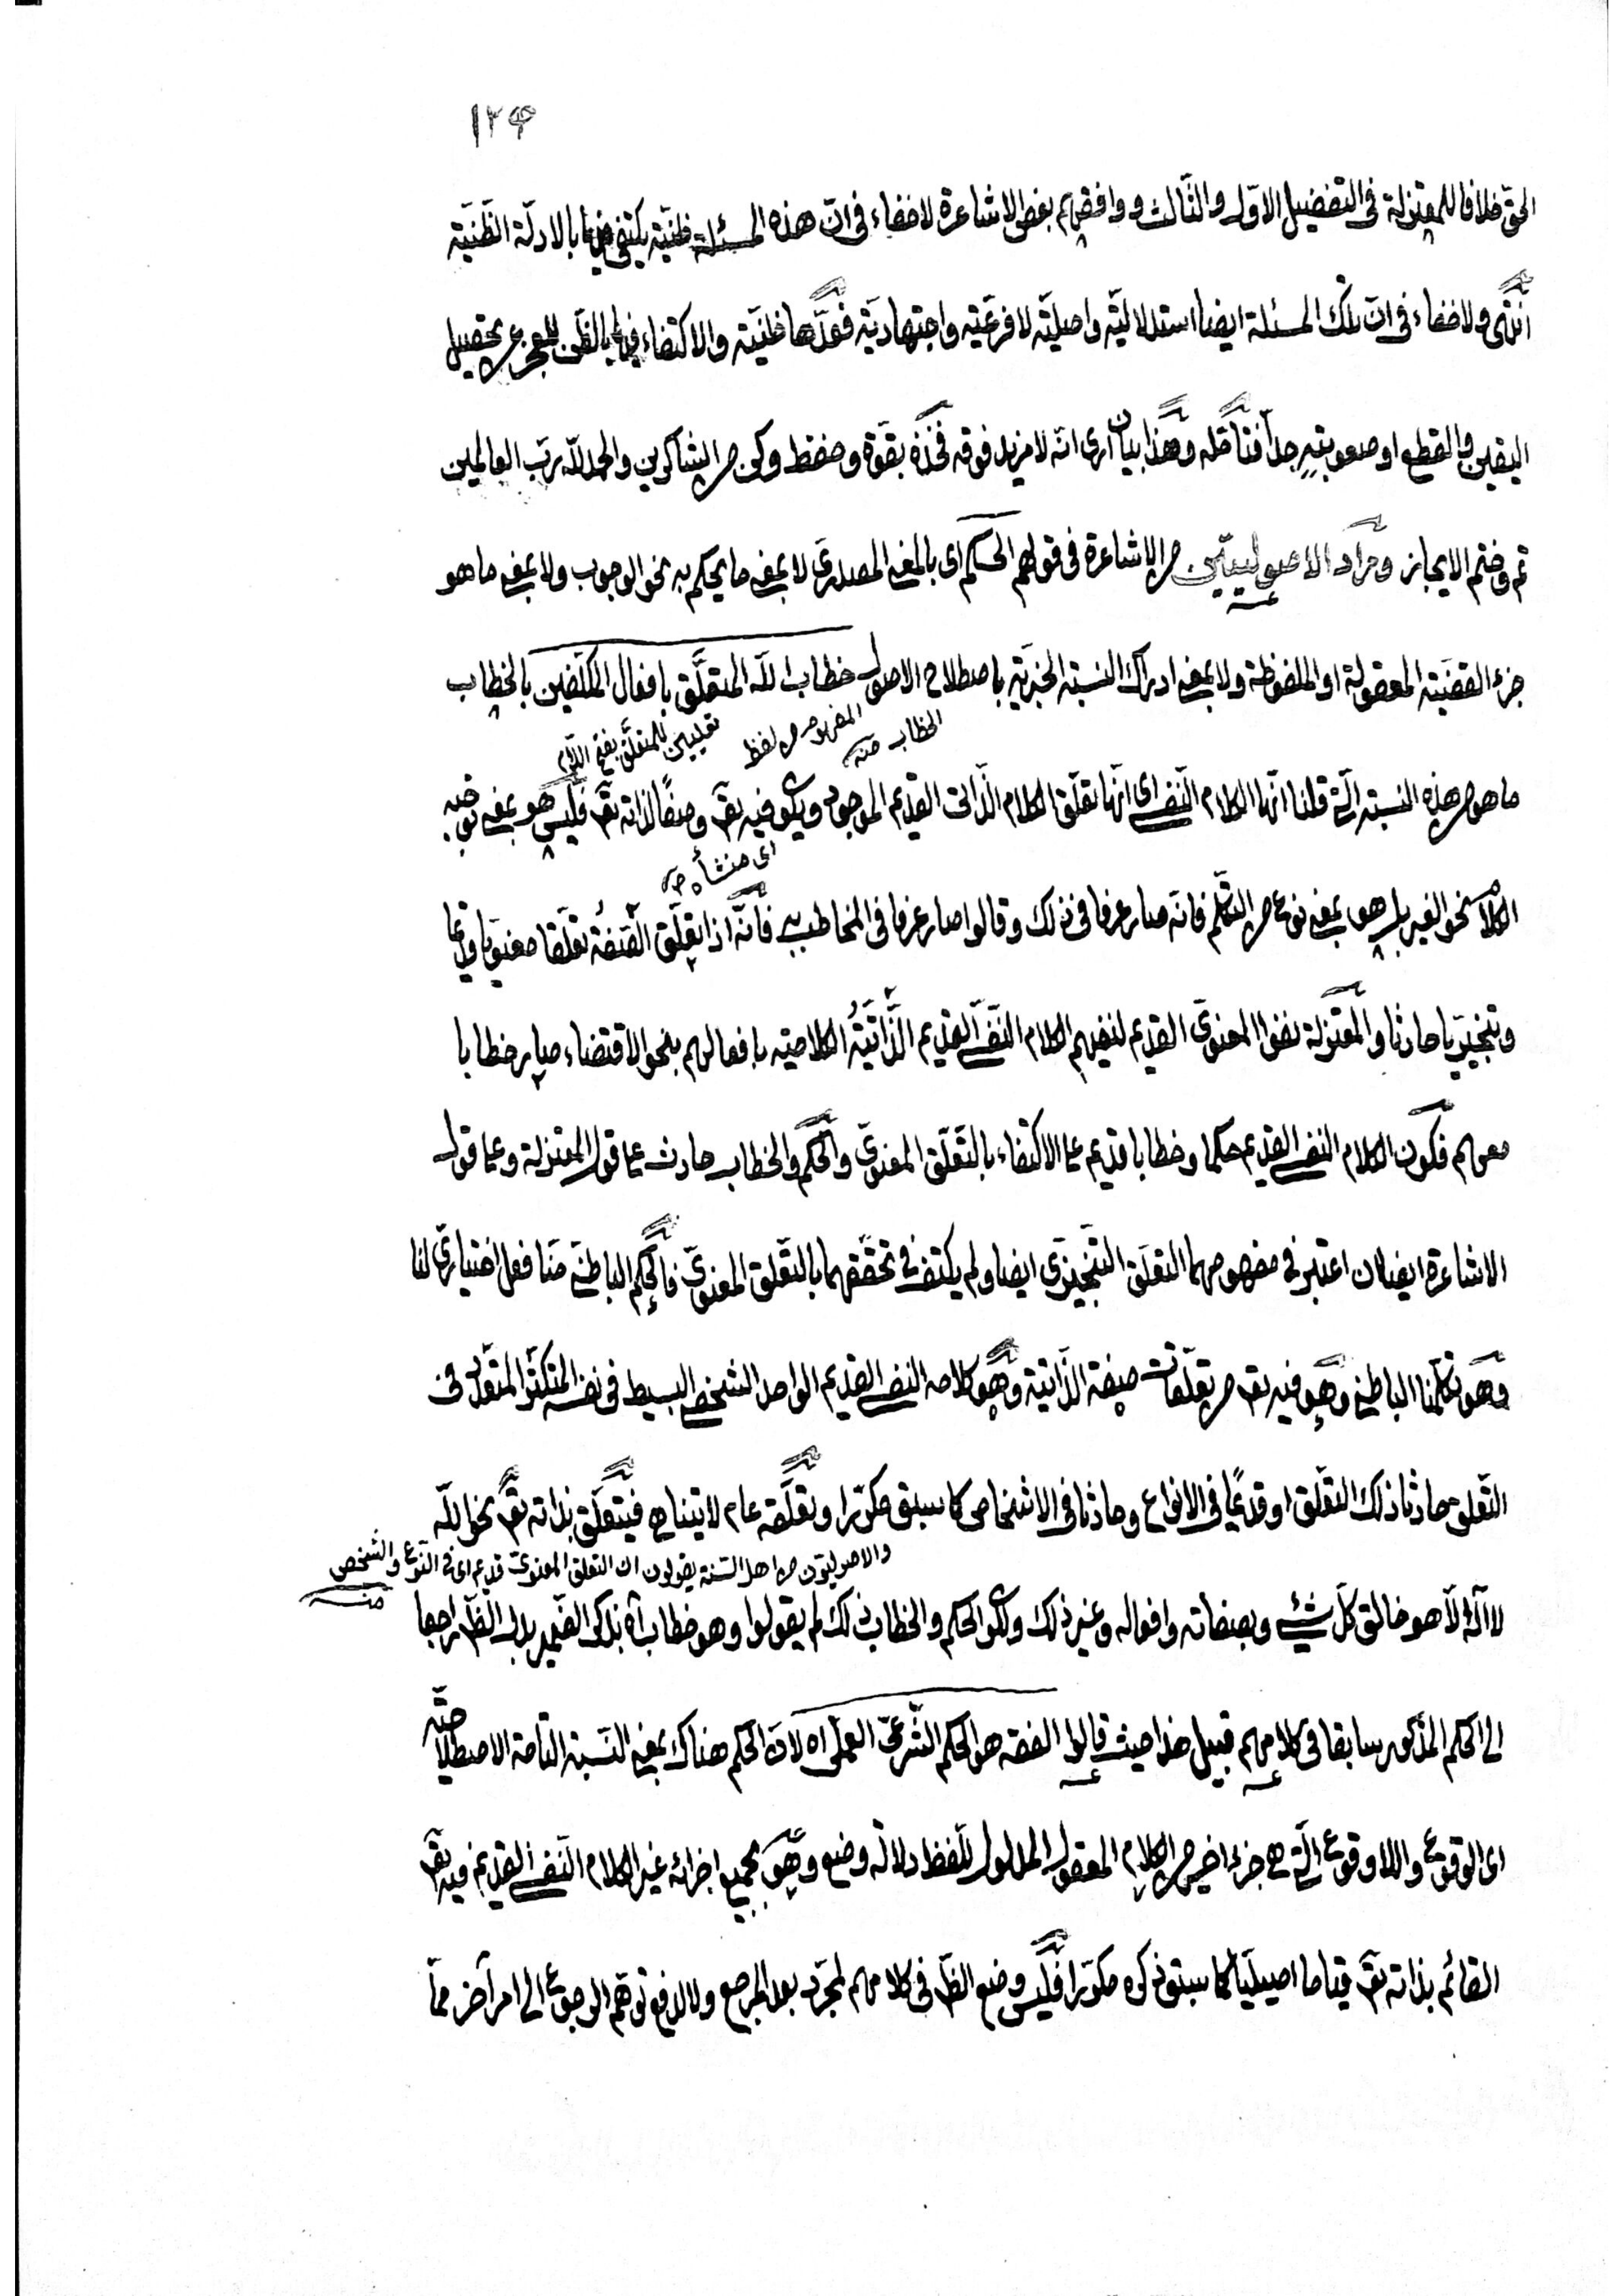 ١٢٤
الحق خلافا للمعتزلة فى التفضيل الاول والثالث ووافقهم بعض الاشاعرة لاخفاء فى ان هذه المسئلة ظنية يكتفى فيها بالادلة الظنية
انتهى ولاخفاء فى ان تلك المسئلة ايضا استدلالية واصلية لا فرعية واجتهادية فعدها ظنية والاكتفاء فيها بالظن للعجز عن تحصيل
اليقين والقطع او صعوبته جدا فتأمله وهذا بيان ارى انه لا مزيد فوقه فخذه بقوة وحفظ وكن من الشاكرين والحمد لله رب العالمين
ثم وختم الايجاز ومراد الاصوليين من الاشاعرة فى قولهم الحكم اى بالمعنى المصدرى لا بمعنى ما يحكم به نحو الوجوب ولا بمعنى ما هو
جزء القضية المعقولة او الملفوظة ولا بمعنى ادراك النسبة الخبرية باصطلاح الاصول خطاب الله المتعلق بافعال المكلفين بالخطاب
تعليق للمتعلق بفتح اللام
المفهوم من لفظ
الخطاب منه
ما هو من هذه النسبة التى قلنا انها الكلام النفسى اى انها تعلق الكلام الذاتى القديم الموجود ويكون فيه تعـ وصفا لذاته تعـ فليس هو بمعنى توجيه
اى منشأه منه
الكلام نحو الغير بل هو بمعنى نوع من التكلم فانه صار عرفا فى ذلك وقالوا صار عرفا فى المخاطب به فانه اذا تعلق الصفة تعلقا معنويا قديما
وتنجيزيا حادثا والمعتزلة نفوا المعنوى القديم لنفيهم الكلام النفسى القديم الذاتية الكلامية بافعالهم بنحو الاقتضاء صار خطابا
معهم فكون الكلام النفسى القديم حكما وخطابا قديم على الاكتفاء بالتعلق المعنوى والحكم والخطاب حادث على قول المعتزلة وعلى قول
الاشاعرة ايضا ان اعتبر فى مفهومهما التعلق التنجيزى ايضا ولم يكتف فى تحققهما بالتعلق المعنوى فالحكم الباطنى منا فعل اختيارى لنا
وهو تكلمنا الباطنى وهو فيه تعـ من تعلقات صفته الذاتية وهو كلامه النفسى القديم الواحد الشخصى البسيط فى نفسه المتكثر المتعدد فى
التعلق حادثا ذلك التعلق او قديما فى الانواع وحادثا فى الاشخاص كما سبق مكررا وتعلقه عام لا يتناهى فيتعلق بذاته تعـ نحو الله
والاصوليون من اهل السنة يقولون ان التعلق المعنوى قديم اى فى النوع والشخص منه
لا اله الا هو خالق كل شئ وبصفاته وافعاله وغير ذلك ولكون الحكم والخطاب ذلك لم يقولوا وهو خطاب اه بذكر الضمير بدل الظـ راجعا
الى الحكم المذكور سابقا فى كلامهم قبيل هذا حيث قالوا الفقه هو الحكم الشرعى العملى اه لان الحكم هناك بمعنى النسبة التامة الاصطلاحية
اى الوقوع واللاوقوع التى هى جزء اخير من الكلام المعقول المدلول للفظ دلالة وضع وهو بجميع اجزائه غير الكلام النفسى القديم فيه تعـ
القائم بذاته تعـ قياما اصيليا كما سبق ذكره مكررا فليس وضع الظـ فى كلامهم لمجرد بعد المرجع ولا لدفع توهم الرجوع الى امر آخر مما